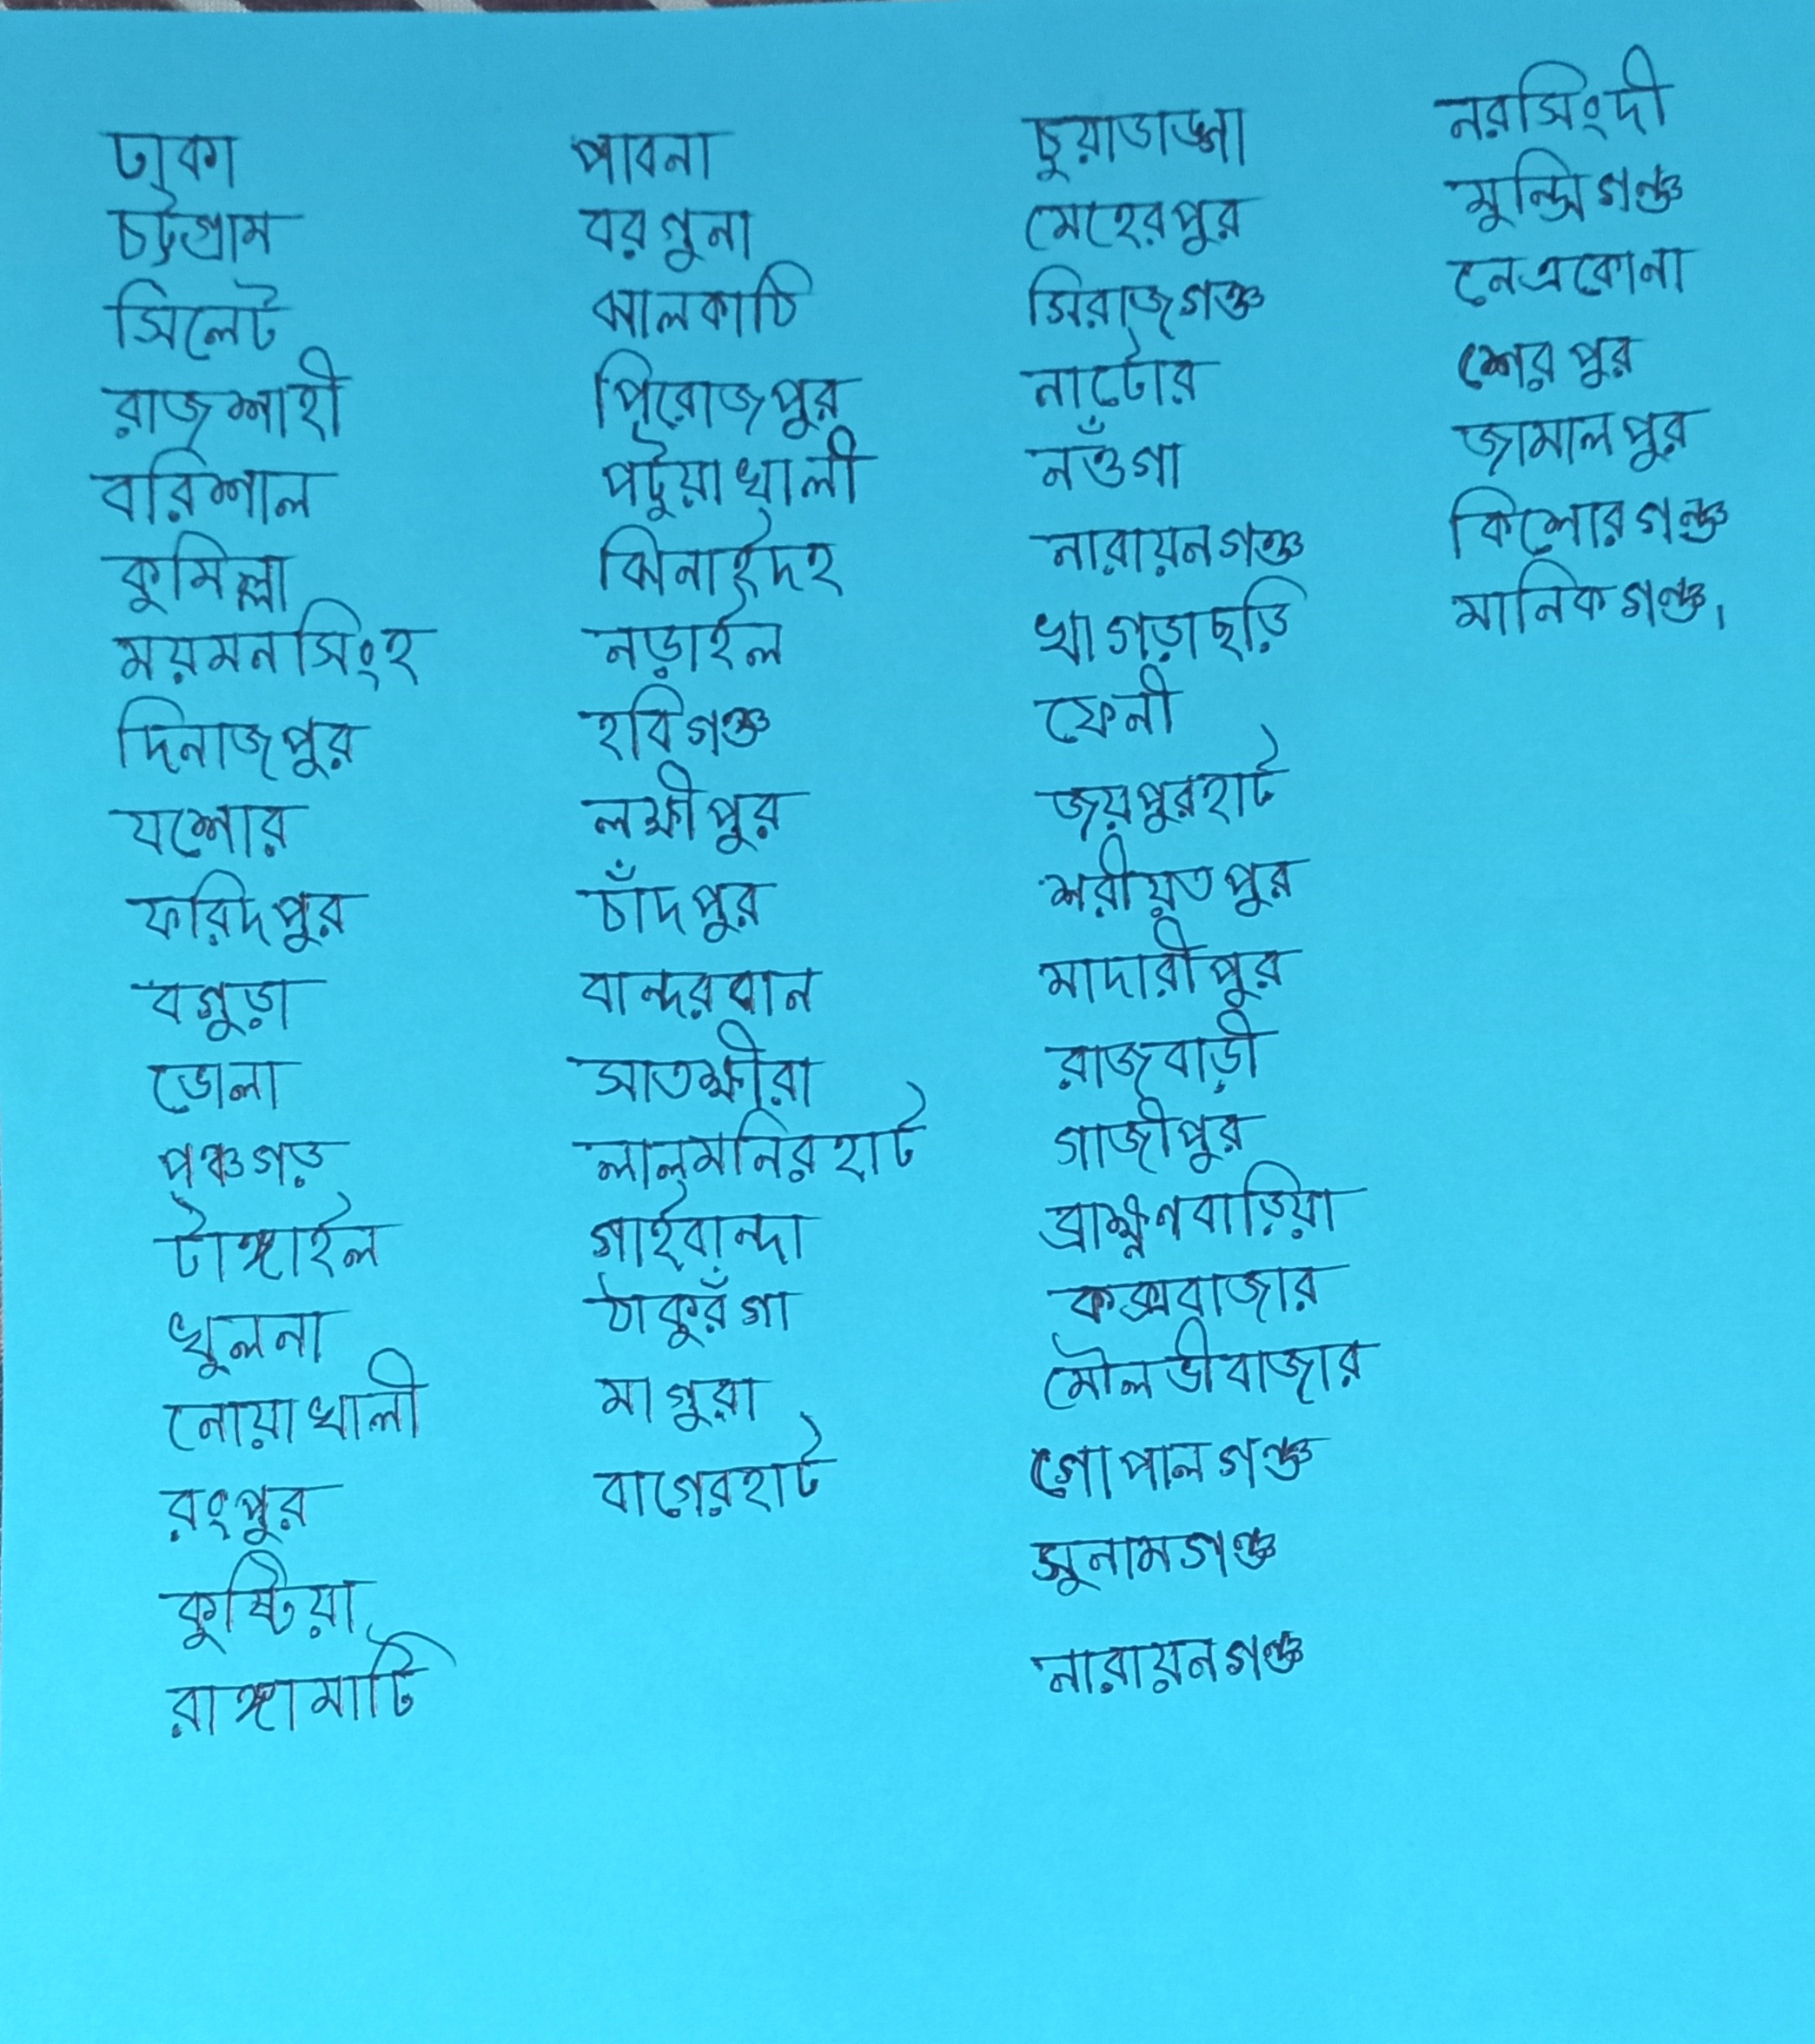 ঢাকা
চট্টগ্রাম
সিলেট
রাজশাহী
বরিশাল
কুমিল্লা
ময়মনসিংহ
দিনাজপুর
যশোর
ফরিদপুর
বগুড়া
ভোলা
পঞ্চগড়
টাঙ্গাইল
খুলনা
নোয়াখালী
রংপুর
কুষ্টিয়া
রাঙ্গামাটি
পাবনা
বরগুনা
ঝালকাঠি
পিরোজপুর
পটুয়াখালী
ঝিনাইদহ
নড়াইল
হবিগঞ্জ
লক্ষীপুর
চাঁদপুর
বান্দরবান
সাতক্ষীরা
লালমনিরহাট
গাইবান্দা
ঠাকুরঁগা
মাগুরা
বাগেরহাট
চুয়াডাঙ্গা
মেহেরপুর
সিরাজগঞ্জ
নাটোর
নওঁগা
নারায়নগঞ্জ
খাগড়াছড়ি
ফেনী
জয়পুরহাট
শরীয়তপুর
মাদারীপুর
রাজবাড়ী
গাজীপুর
ব্রাক্ষ্ণণবাড়িয়া
কক্সবাজার
মৌলভীবাজার
গোপালগঞ্জ
সুনামগঞ্জ
নারায়নগঞ্জ
নরসিংদী
মুন্সিগঞ্জ
নেত্রকোনা
শেরপুর
জামালপুর
কিশোরগঞ্জ
মানিকগঞ্জ।